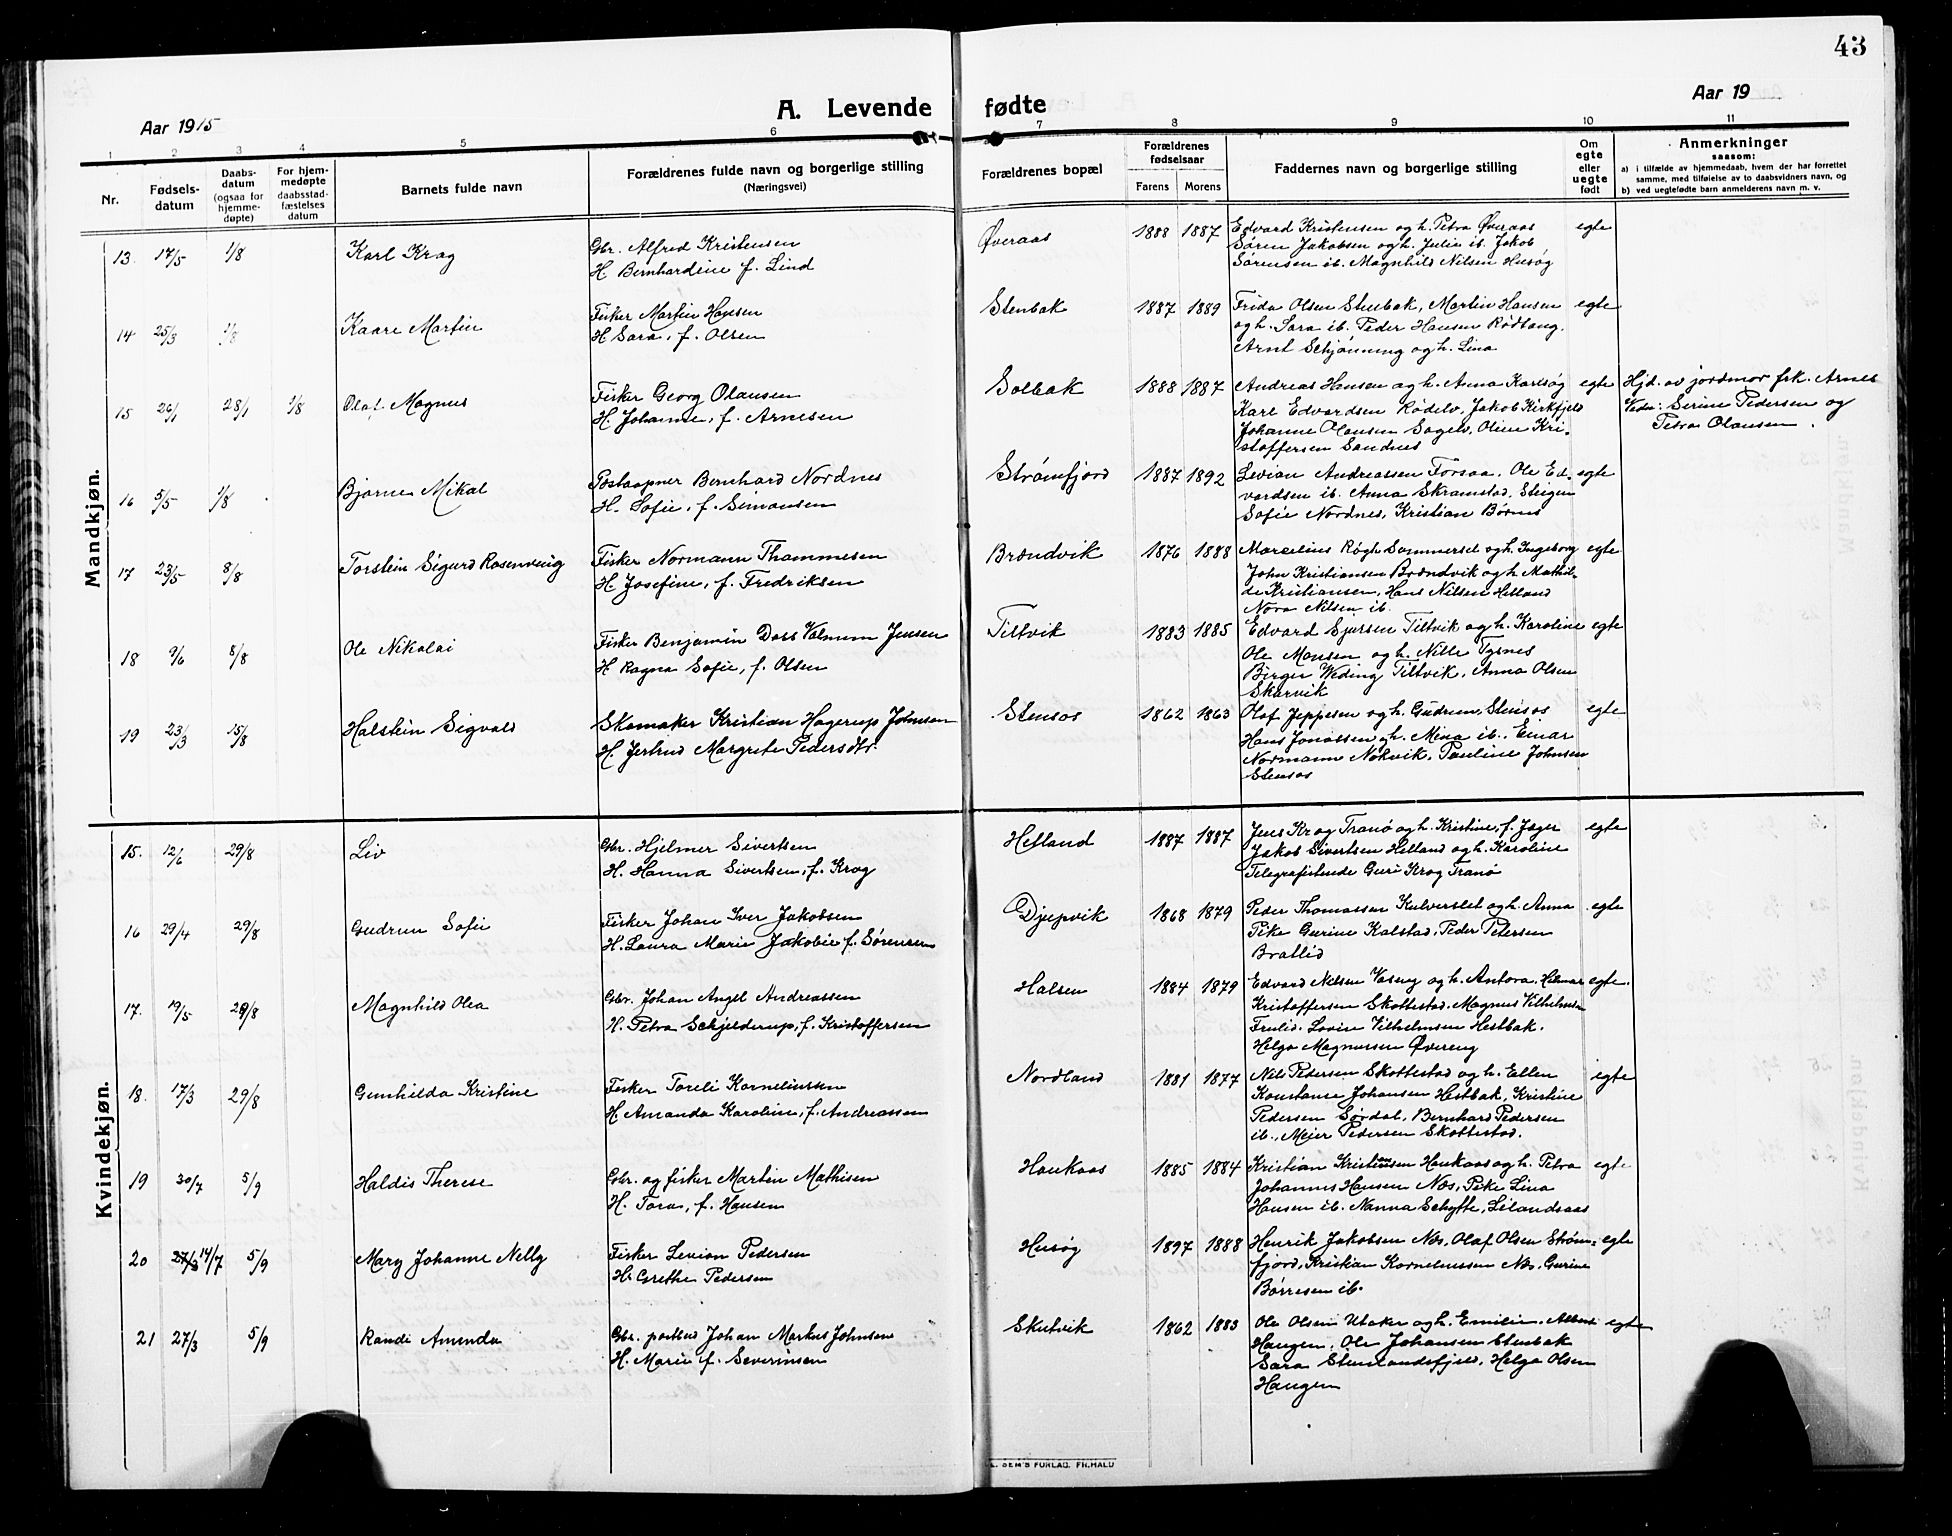 43
A. Levende fødte
Aar 1915
Aar 19
1 2 3 4 5 6 7 8 9 10 11
Nr.
Fødsels-
datum
Daabs-
datum
(ogsaa for
hjemme-
døpte)
For hjem-
medøpte
daabsstad-
fæstelses
datum
Barnets fulde navn
Forældrenes fulde navn og borgerlige stilling
(Næringsvei)
Forældrenes bopæl
Forældrenes
fødselsaar
Farens Morens
Faddernes navn og borgerlige stilling
Om
egte
eller
uegte
født
Anmerkninger
saasom:
a) i tilfælde av hjemmedaab, hvem der har forrettet
samme, med tilføielse av to daabsvidners navn, og
b) ved uegtefødte barn anmelderens navn m. v.
Mandkjøn.
13. 17/5 1/8 Karl Krag Gbr. Alfred Kristensen Øveraas 1888 1887 Edvard Kristensen og h. Petra Øveraas egte
H. Bernhardine f. Lind Søren Jakobsen og h. Julie ib. Jakob
Sørensen ib. Magnhild Nilsen Husøg
14 25/3 1/8 Kaare Martin Fisker Martin Hansen Stenbak 1887 1889 Frida Olsen Stenbak, Martin Hansen egte
H Sara, f. Olsen og h. Sara ib. Peder Hansen Rødtang.
Arnt Schjønning og h. Lina
15 26/1 28/1 1/8 Olaf Magnus Fisker Georg Olausen Solbak 1888 1887 Andreas Hansen og h. Anna Karlsøg egte Hjd. av jordmor frk. Arnes
H. Johanne, f. Arnesen Karl Edvardsen Rødelv, Jakob Kirkfjeld Vidn: Serine Pedersen og
Johanne Olausen Sagelv, Oline Kri- Petra Olausen.
stoffersen Sandnes
16 5/5 1/8 Bjarne Mikal Postaapner Bernhard Nordnes Strømfjord 1887 1892 Levian Andreassen Forsaa, Ole Ed- egte
H. Sofie, f. Simonsen vardsen ib. Anna Skramstad, Steigen
Sofie Nordnes, Kristian Børnes
17 23/5 8/8 Torstein Sigurd Rosenveig Fisker Normann Thommesen Brændvik 1876 1888 Marcelius Røgh Sommerset og h. Ingeborg egte
H. Josefine, f. Fredriksen John Kristiansen Brændvik og h. Mathil-
de Kristiansen, Hans Nilsen Helland
Nora Nilsen ib.
18 9/6 8/8 Ole Nikolai Fisker Benjamin Dass Valmem Jensen Tiltvik 1883 1885 Edvard Sjursen Tiltvik og h. Karoline egte
H. Ragna Sofie, f. Olsen Ole Monsen og h. Nille Tysnes
Birger Weding Tiltvik, Anna Olsen
Skarvik
19 23/3 15/8 Halstein Sigvald Skomaker Kristian Hagerup Johnsen Stensos 1862 1863 Olaf Jeppesen og h. Gudrun, Stensos egte
H. Jertrud Margrete Pedersdtr. Hans Jonassen og h. Mina ib., Einar
Normann Nøkvik, Pauline Johnsen
Stensos
Kvindekjøn.
15. 12/6 29/8 Liv Gbr. Hjelmer Sivertsen Helland 1887 1887 Jens Krog Tranø og h. Kristine, f. Jæger egte
H. Hanna Sivertsen, f. Krog Jakob Sivertsen Helland og h. Karoline
Telegrafistinde Guri Krog Tranø
16 29/4 29/8 Gudrun Sofie Fisker Johan Iver Jakobsen Djupvik 1868 1879 Peder Thomassen Kulverslet og h. Anna egte
H. Laura Marie Jakobie f. Sørensen Pike Gurine Kalstad, Peder Petersen
Brattlid
17. 19/5 29/8 Magnhild Olea Gbr. Johan Angel Andreassen Halsen 1884 1879 Edvard Nilsen Vaseng og h. Antora, Hilmar egte.
H. Petra Schjelderup, f. Kristoffersen Kristoffersen Skottestad, Magnus Vilhelmsen
Frulid. Lovise Vilhelmsen Hestbak.
Helga Magnussen Øvereng
18. 17/3 29/8 Gunhilda Kristine Fisker Toreli Korneliussen Nordland 1881 1877 Nils Pedersen Skottestad og h. Ellen egte
H. Amanda Karoline, f. Andreassen Konstanse Johansen Hestbak, Kristine
Pedersen Sørdal, Bernhard Pedersen
ib., Meier Pedersen Skottestad.
19 30/7 5/9 Haldis Therese Gbr. og fisker Martin Mathisen Haukaas 1885 1884 Kristian Kristiansen Haukaas og h. Petra egte
H. Tora, f. Hansen Johannes Hansen Næs, Pike Lina
Hansen ib. Nanna Schytte, Leilandsaas
20 27/3 14/7 5/9 Mary Johanne Nelly Fisker Levion Pedersen Husøg 1897 1888 Henrik Jakobsen Næs, Olaf Olsen Strøm- egte
H. Grethe Pedersen fjord, Kristian Korneliussen Næs. Gurine
Børresen ib.
21 27/3 5/9 Randi Amanda Gbr. postbud Johan Markus Johnsen Skutvik 1862 1883 Ole Olsen Utaker og h. Emilie, Albert egte
H. Marie f. Severinsen Haugen, Ole Johansen Stenbak
Sara Stenlandsfjeld, Helga Olsen
Haugen
SEM'S FORLAG. FR.HALD